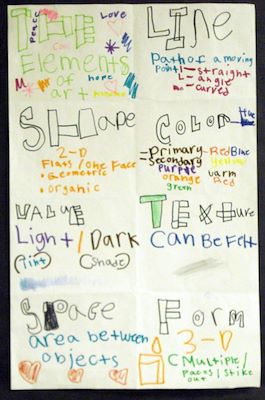 THE
Peace
Love
Elements
of hope
art
LINE
Path of a moving
Point - straight
L - angle
curved
SHApe
2-D
Flats/One Face
• Geometric
• organic
COLOR
blue
-Primary-Red Blue
-Secondary Yellow
Purple
orange warm
green Red
VALUE
Light/Dark
Tint Shade
TExture
Can Be Felt
Space
area between
objects
Form
3-D
Multiple/
Faces/Stike
out